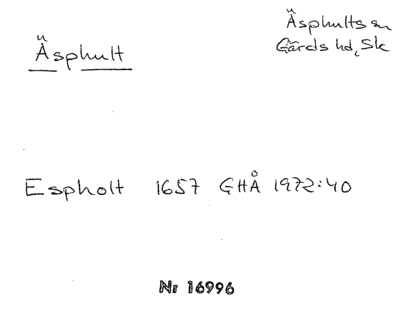 Äsphult
Äsphults sn
Gärds hd, Sk
Espholt 1657 GHÅ 1972:40
Nr 16996